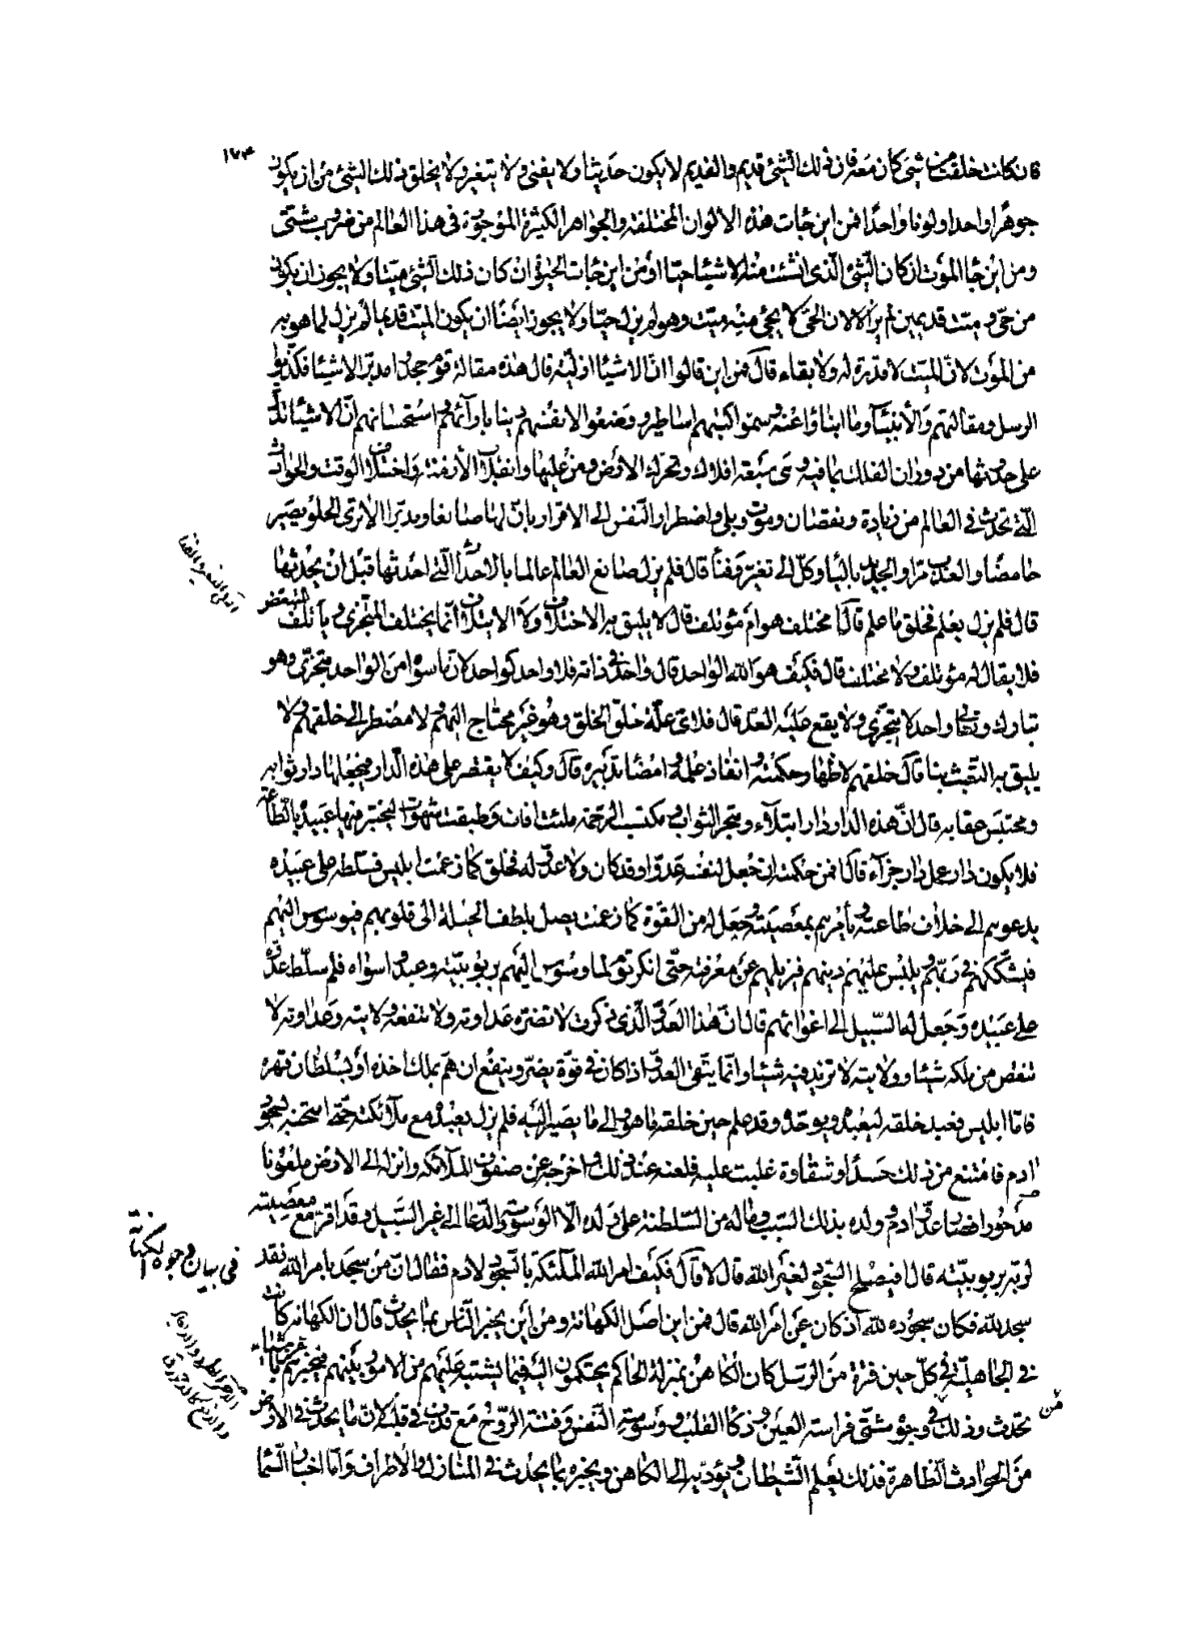 ١٧٤
فان كانت خلقت من شئ كان معه فان ذلك الشئ قديم والقديم لا يكون حديثا ولا يفنى ولا يتغير ولا يخلو ذلك الشئ من ان يكون
جوهرا واحدا ولونا واحدا فمن اين جاءت هذه الالوان المختلفة والجواهر الكثيرة الموجودة فى هذا العالم من ضروب شتى
ومن اين جاء الموت ان كان الشئ الذى انشئت منه الاشياء حيا او من اين جاءت الحيوة ان كان ذلك الشئ ميتا ولا يجوز ان يكون
من حى وميت قديمين لم يزالا لان الحى لا يجئ منه ميت وهو لم يزل حيا ولا يجوز ايضا ان يكون الميت قديما لم يزل لما هو به
من الموت لان الميت لا قدرة له ولا بقاء قال فمن اين قالوا ان الاشياء ازلية قال هذه مقالة قوم جحدوا مدبر الاشياء فكذبوا
الرسل ومقالتهم والأنبياء وما انبأوا عنه وسموا كتبهم اساطير ووضعوا لانفسهم دينا بارآئهم واستحسانهم ان الاشياء تدل
على حدوثها من دوران الفلك بما فيه وهى سبعة افلاك وتحرك الارض ومن عليها وانقلاب الازمنة واختلاف الوقت والحوادث
التى تحدث فى العالم من زيادة ونقصان وموت وبلى واضطرار النفس الى الاقرار بان لها صانعا ومدبرا الا ترى الحلو يصير
حامضا والعذب مرا والجديد باليا وكل الى تغير وفناء قال فلم يزل صانع العالم عالما بالاحداث التى احدثها قبل ان يحدثها
قال فلم يزل يعلم فخلق ما علم قال أمختلف هو ام مؤتلف قال لا يليق به الاختلاف ولا الايتلاف انما يختلف المتجزى ويأتلف المتبعض
فلا يقال له مؤتلف ولا مختلف قال فكيف هو الله الواحد قال واحد فى ذاته فلا واحد كواحد لان ما سواه من الواحد متجزى وهو
تبارك وتعالى واحد لا متجزى ولا يقع عليه العد قال فلأى علة خلق الخلق وهو غير محتاج اليهم ولا مضطر الى خلقهم ولا
يليق به التعبث بنا قال خلقهم لاظهار حكمته وانفاذ علمه وامضاء تدبيره قال وكيف لا يقتصر على هذه الدار فيجعلها دار ثوابه
ومحتبس عقابه قال ان هذه الدار دار ابتلاء ومتجر الثواب ومكتسب الرحمة ملئت افات وطبقت شهوات ليختبر فيها عبيده بالطاعة
فلا يكون دار عمل دار جزآء قال أفمن حكمته ان جعل لنفسه عدوا وقد كان ولا عدو له فخلق كما زعمت ابليس فسلطه على عبيده
يدعوهم الى خلاف طاعته ويأمرهم بمعصيته وجعل له من القوة كما زعمت يصل بلطف الحيلة الى قلوبهم فيوسوس اليهم
فيشككهم فى ربهم ويلبس عليهم دينهم فيزيلهم عن معرفته حتى انكر قوم لما وسوس اليهم ربوبيته وعبدوا سواه فلم سلط عدوه
على عبيده وجعل له السبيل الى اغوائهم قال ان هذا العدو الذى ذكرت لا تضره عداوته ولا تنفعه ولايته وعداوته لا
تنقص من ملكه شيئا وولايته لا تزيد فيه شيئا وانما يتقى العدو اذا كان فى قوة يضر وينفع ان هم بملك اخذه او بسلطان قهره
فاما ابليس فعبد خلقه ليعبده ويوحده وقد علم حين خلقه ما هو والى ما يصير اليه فلم يزل يعبده مع ملآئكته حتى امتحنه بسجود
ادم فامتنع من ذلك حسدا وشقاوة غلبت عليه فلعنه عند ذلك واخرجه عن صفوف الملآئكه وانزله الى الارض ملعونا
مدحورا فصار عدو ادم وولده بذلك السبب وما له من السلطنة على ولده الا الوسوسة والدعاء الى غير السبيل وقد اقر مع معصيته
لربه بربوبيته قال افيصلح السجود لغير الله قال لا قال فكيف امر الله الملئكة بالسجود لادم فقال ان من سجد بامر الله فقد
سجد لله فكان سجوده لله اذ كان عن امر الله قال فمن اين اصل الكهانة ومن اين يخبر الناس بما يحدث قال ان الكهانة كانت
فى الجاهلية فى كل حين فترة من الرسل كان الكاهن بمنزلة الحاكم يحتكمون اليه فيما يشتبه عليهم من الامور بينهم فيخبرهم باشياء
تحدث وذلك فى وجوه شتى فراسة العين وذكاء القلب ووسوسة النفس وفتنة الروح مع قذف فى قلبه لان ما يحدث فى الارض
من الحوادث الظاهرة فذلك يعلم الشيطان ويؤديه الى الكاهن ويخبره بما يحدث فى المنازل والاطراف واما اخبار السما
فى بيان وجوه الكهانة